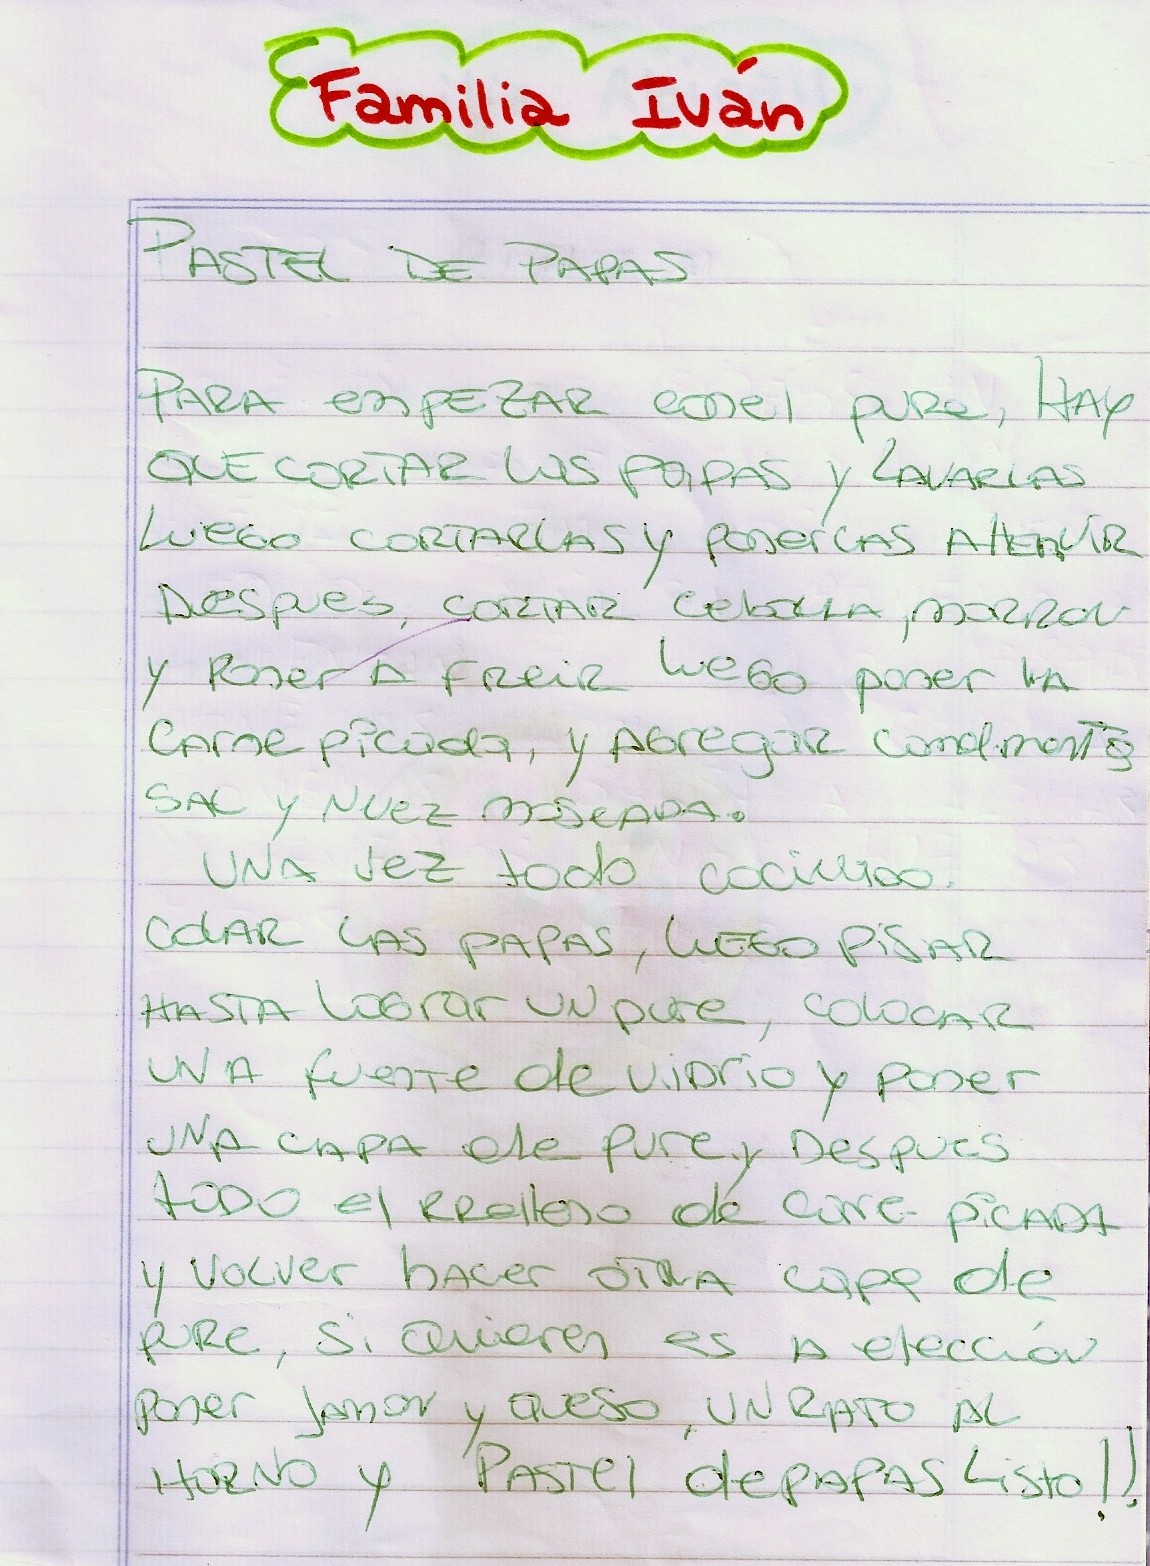 Familia Iván
PASTEL DE PAPAS
PARA empEZAR conel pure, HAY
QUE CORTAR LAS PAPAS y LAVARLAS
Luego CORTARLAS y ponerLAS A HERVIR
Despues, CORTAR CebollA, morron
y poner A FReiR Luego poner LA
Carne picada, y AGregar condimento
SAL y NUEZ mosCADA.
UNA vez todo cocinado.
COLAR LAS PAPAS, LUEGO PiSAR
HASTA Lograr UN pure, COLOCAR
UNA fuente de ViDrio y poner
UNA CAPA de pure y Despues
toDO el RRelleno de carne PiCADA
y VOLVer hacer OTRA capa de
pURe, Si Quieren es A elección
poner Jamon y queso, UN RATO AL
HORNO y PASTEl dePAPAS Listo!!